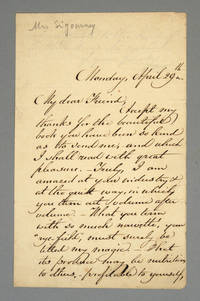 Mrs Sigourney
Monday, April 29th.
My dear Friend,
Accept my
thanks for the beautiful
book you have been so kind
as to send me, and which
I shall read with great
pleasure. - Truly, I am
amazed at your industry, &
at the quick way, in which
you throw out volume after
volume. - What you learn
with so much
must surely be
magic. - That
its product may be nutritious
to others, & profitable to yourself,